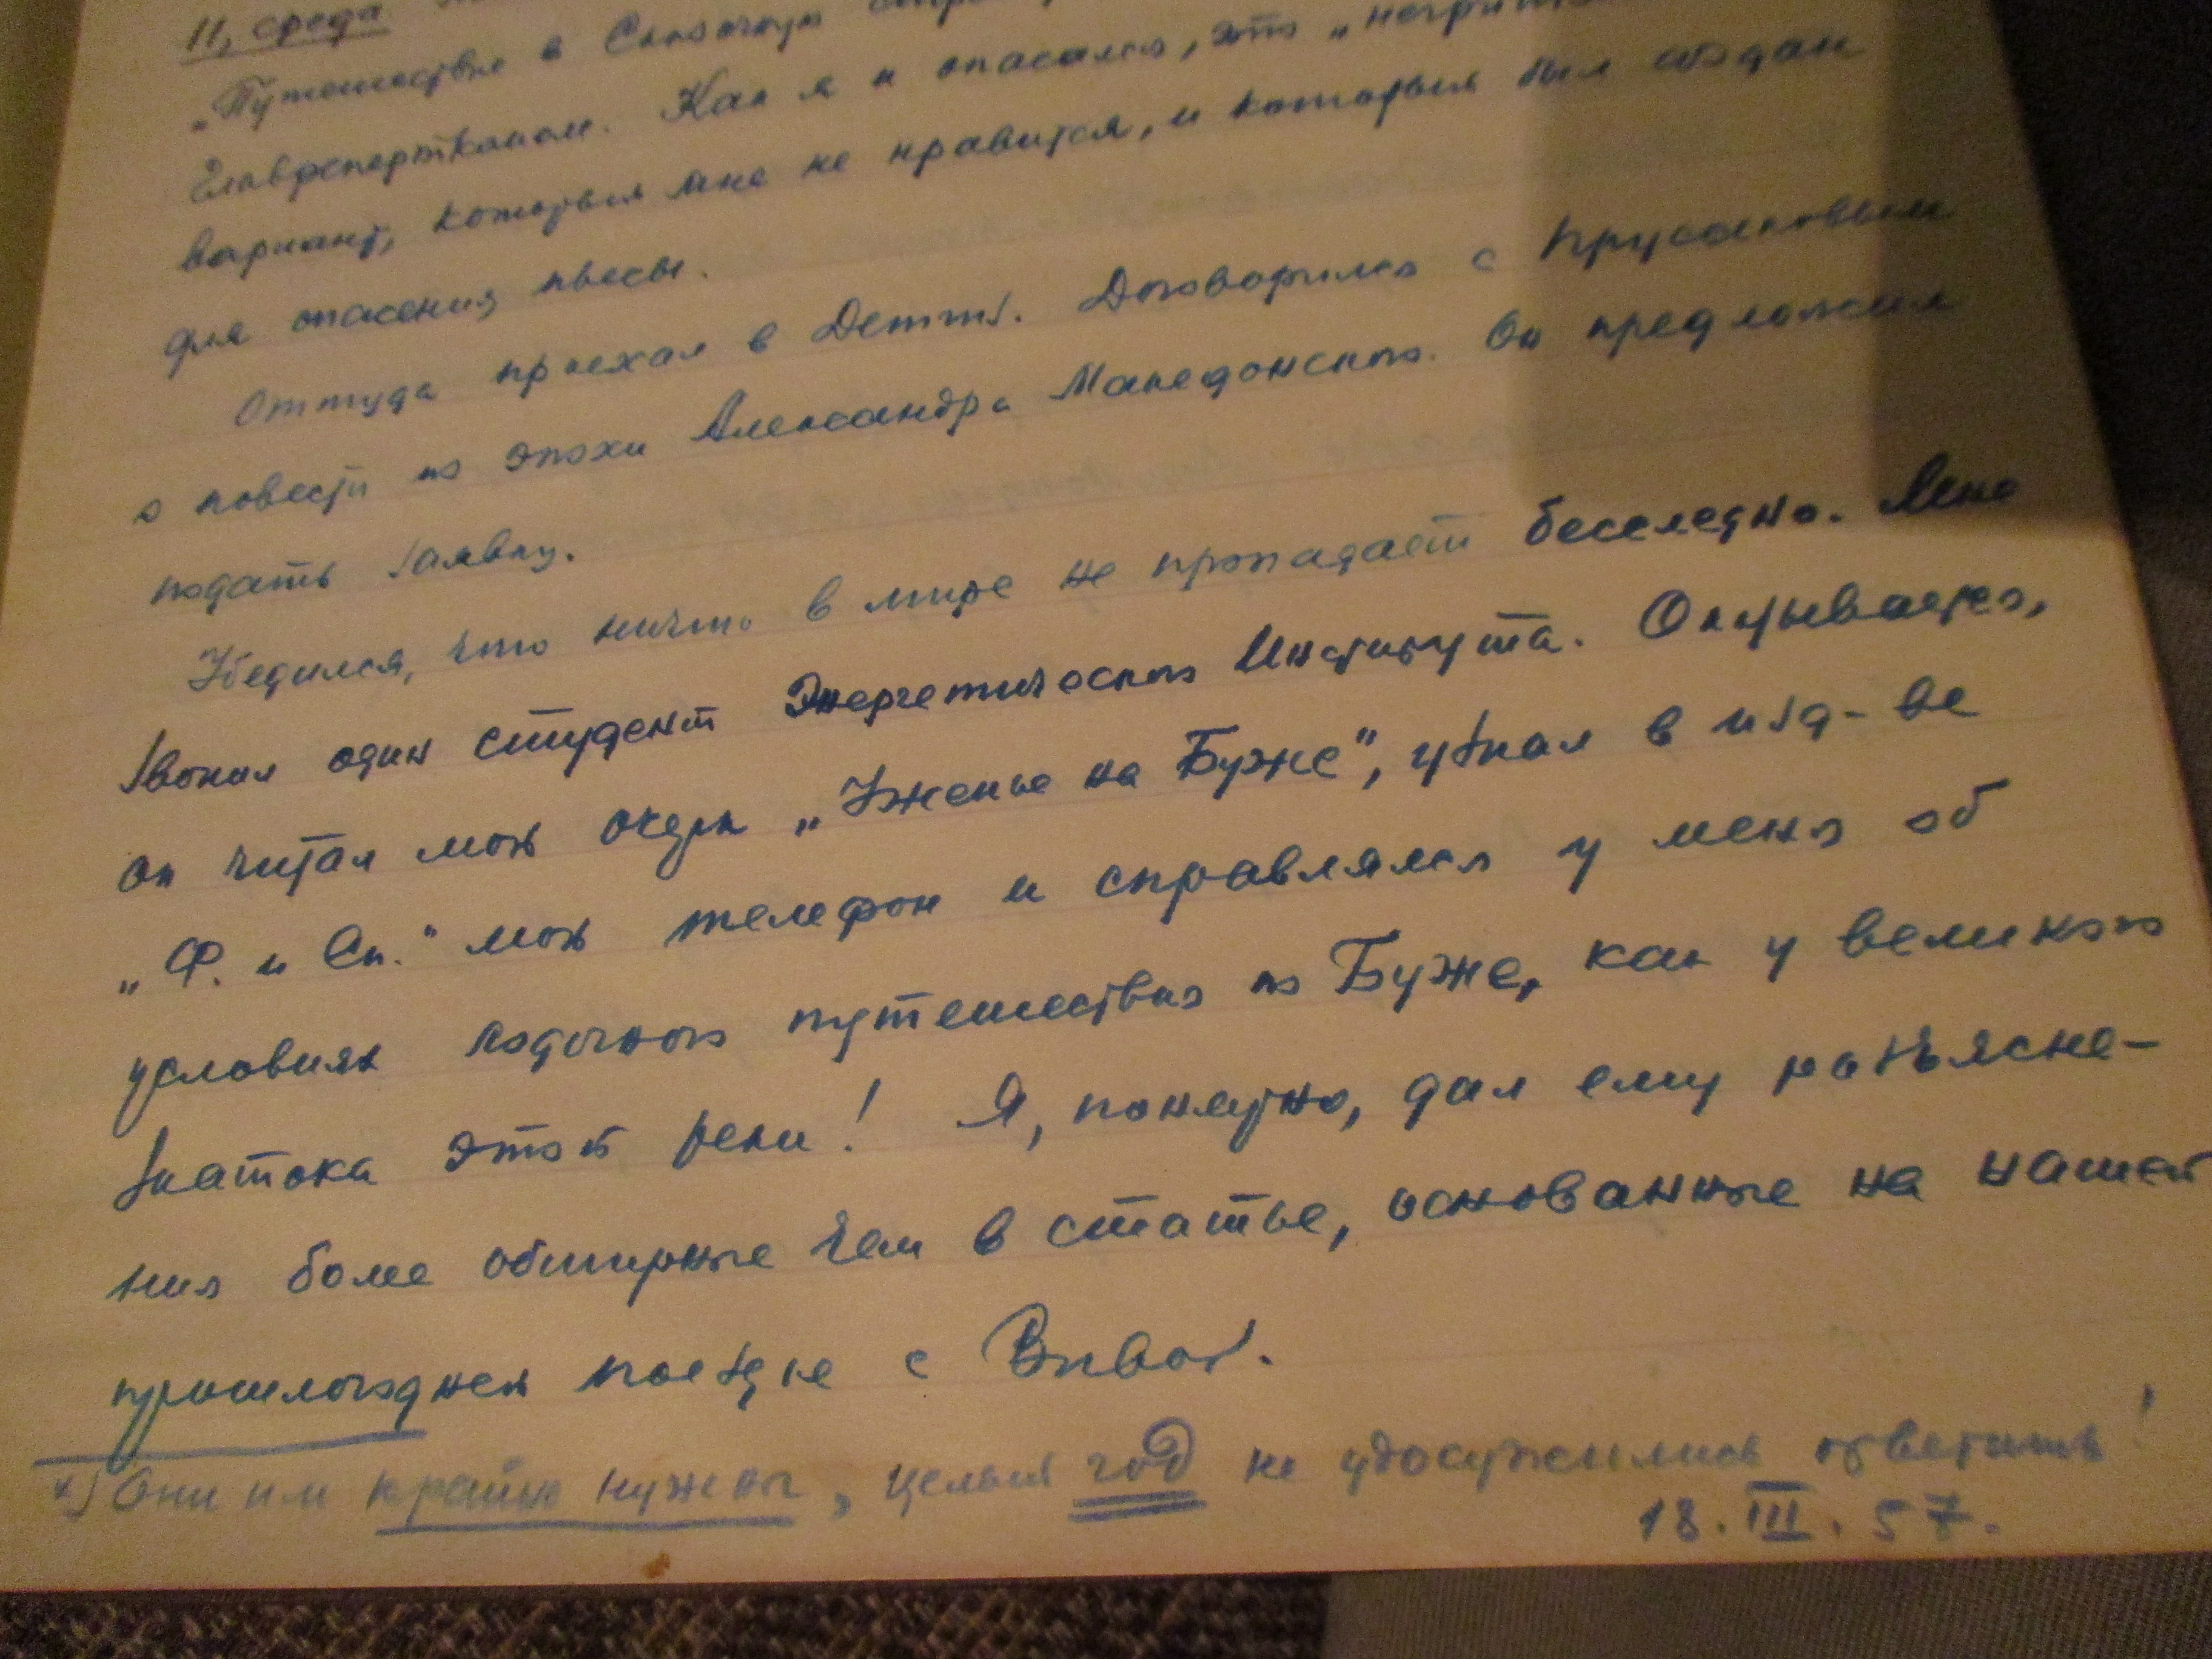 11, среда.
„Путешествие в Сказочную
Главреперткомом. Как я и опасался, это
вариант, который мне не нравится, и который был создан
для спасения пьесы.
Оттуда приехал в Детгиз. Договорился с Прусаковым
о повести из эпохи Александра Македонского. Он предложил
подать заявку.
Убедился, что ничто в мире не пропадает бесследно. Мне
звонил один студент Энергетического Института. Оказывается,
он читал мой очерк „Уженье на Буже", узнал в изд-ве
„Ф. и Сп." мой телефон и справлялся у меня об
условиях лодочного путешествия по Буже, как у великого
знатока этой реки! Я, понятно, дал ему разъясне-
ния более обширные чем в статье, основанные на нашей
прошлогодней поездке с
*) Они им крайне нужны, целый год не удосужились ответить!
18.III.57.